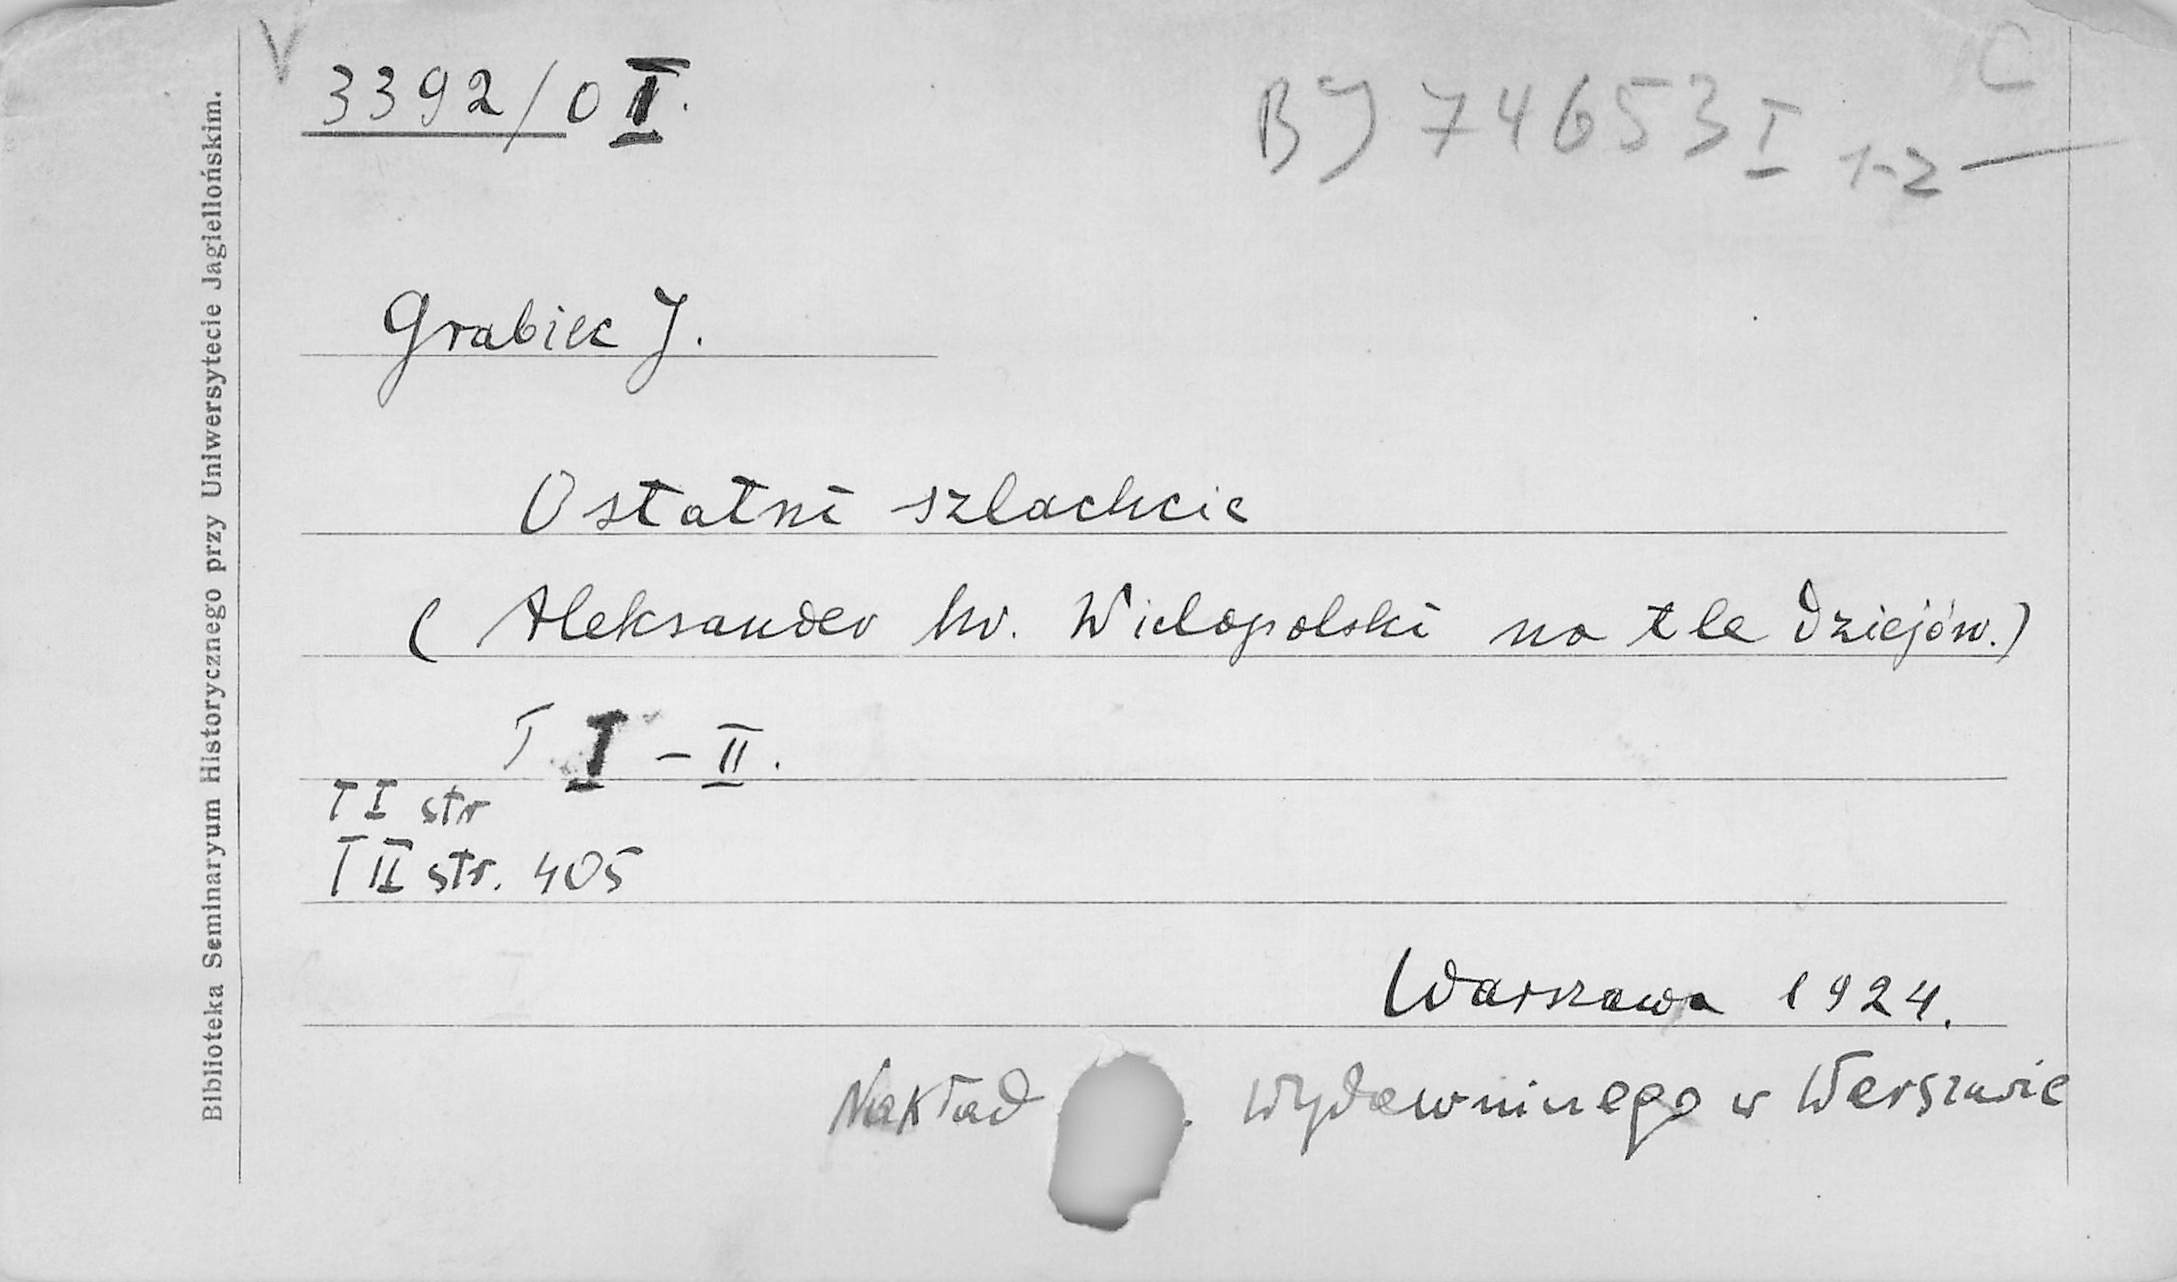 V
3392/O I.
C
BJ 74653 I 1-2
Grabiec J.
Ostatni szlachcic
(Aleksander hr. Wielopolski na tle dziejów.)
T I - II.
T I str
T II str. 405
Warszawa 1924.
Nakład . Wydawniczego w Warszawie
Biblioteka Seminaryum Historycznego przy Uniwersytecie Jagiellońskim.